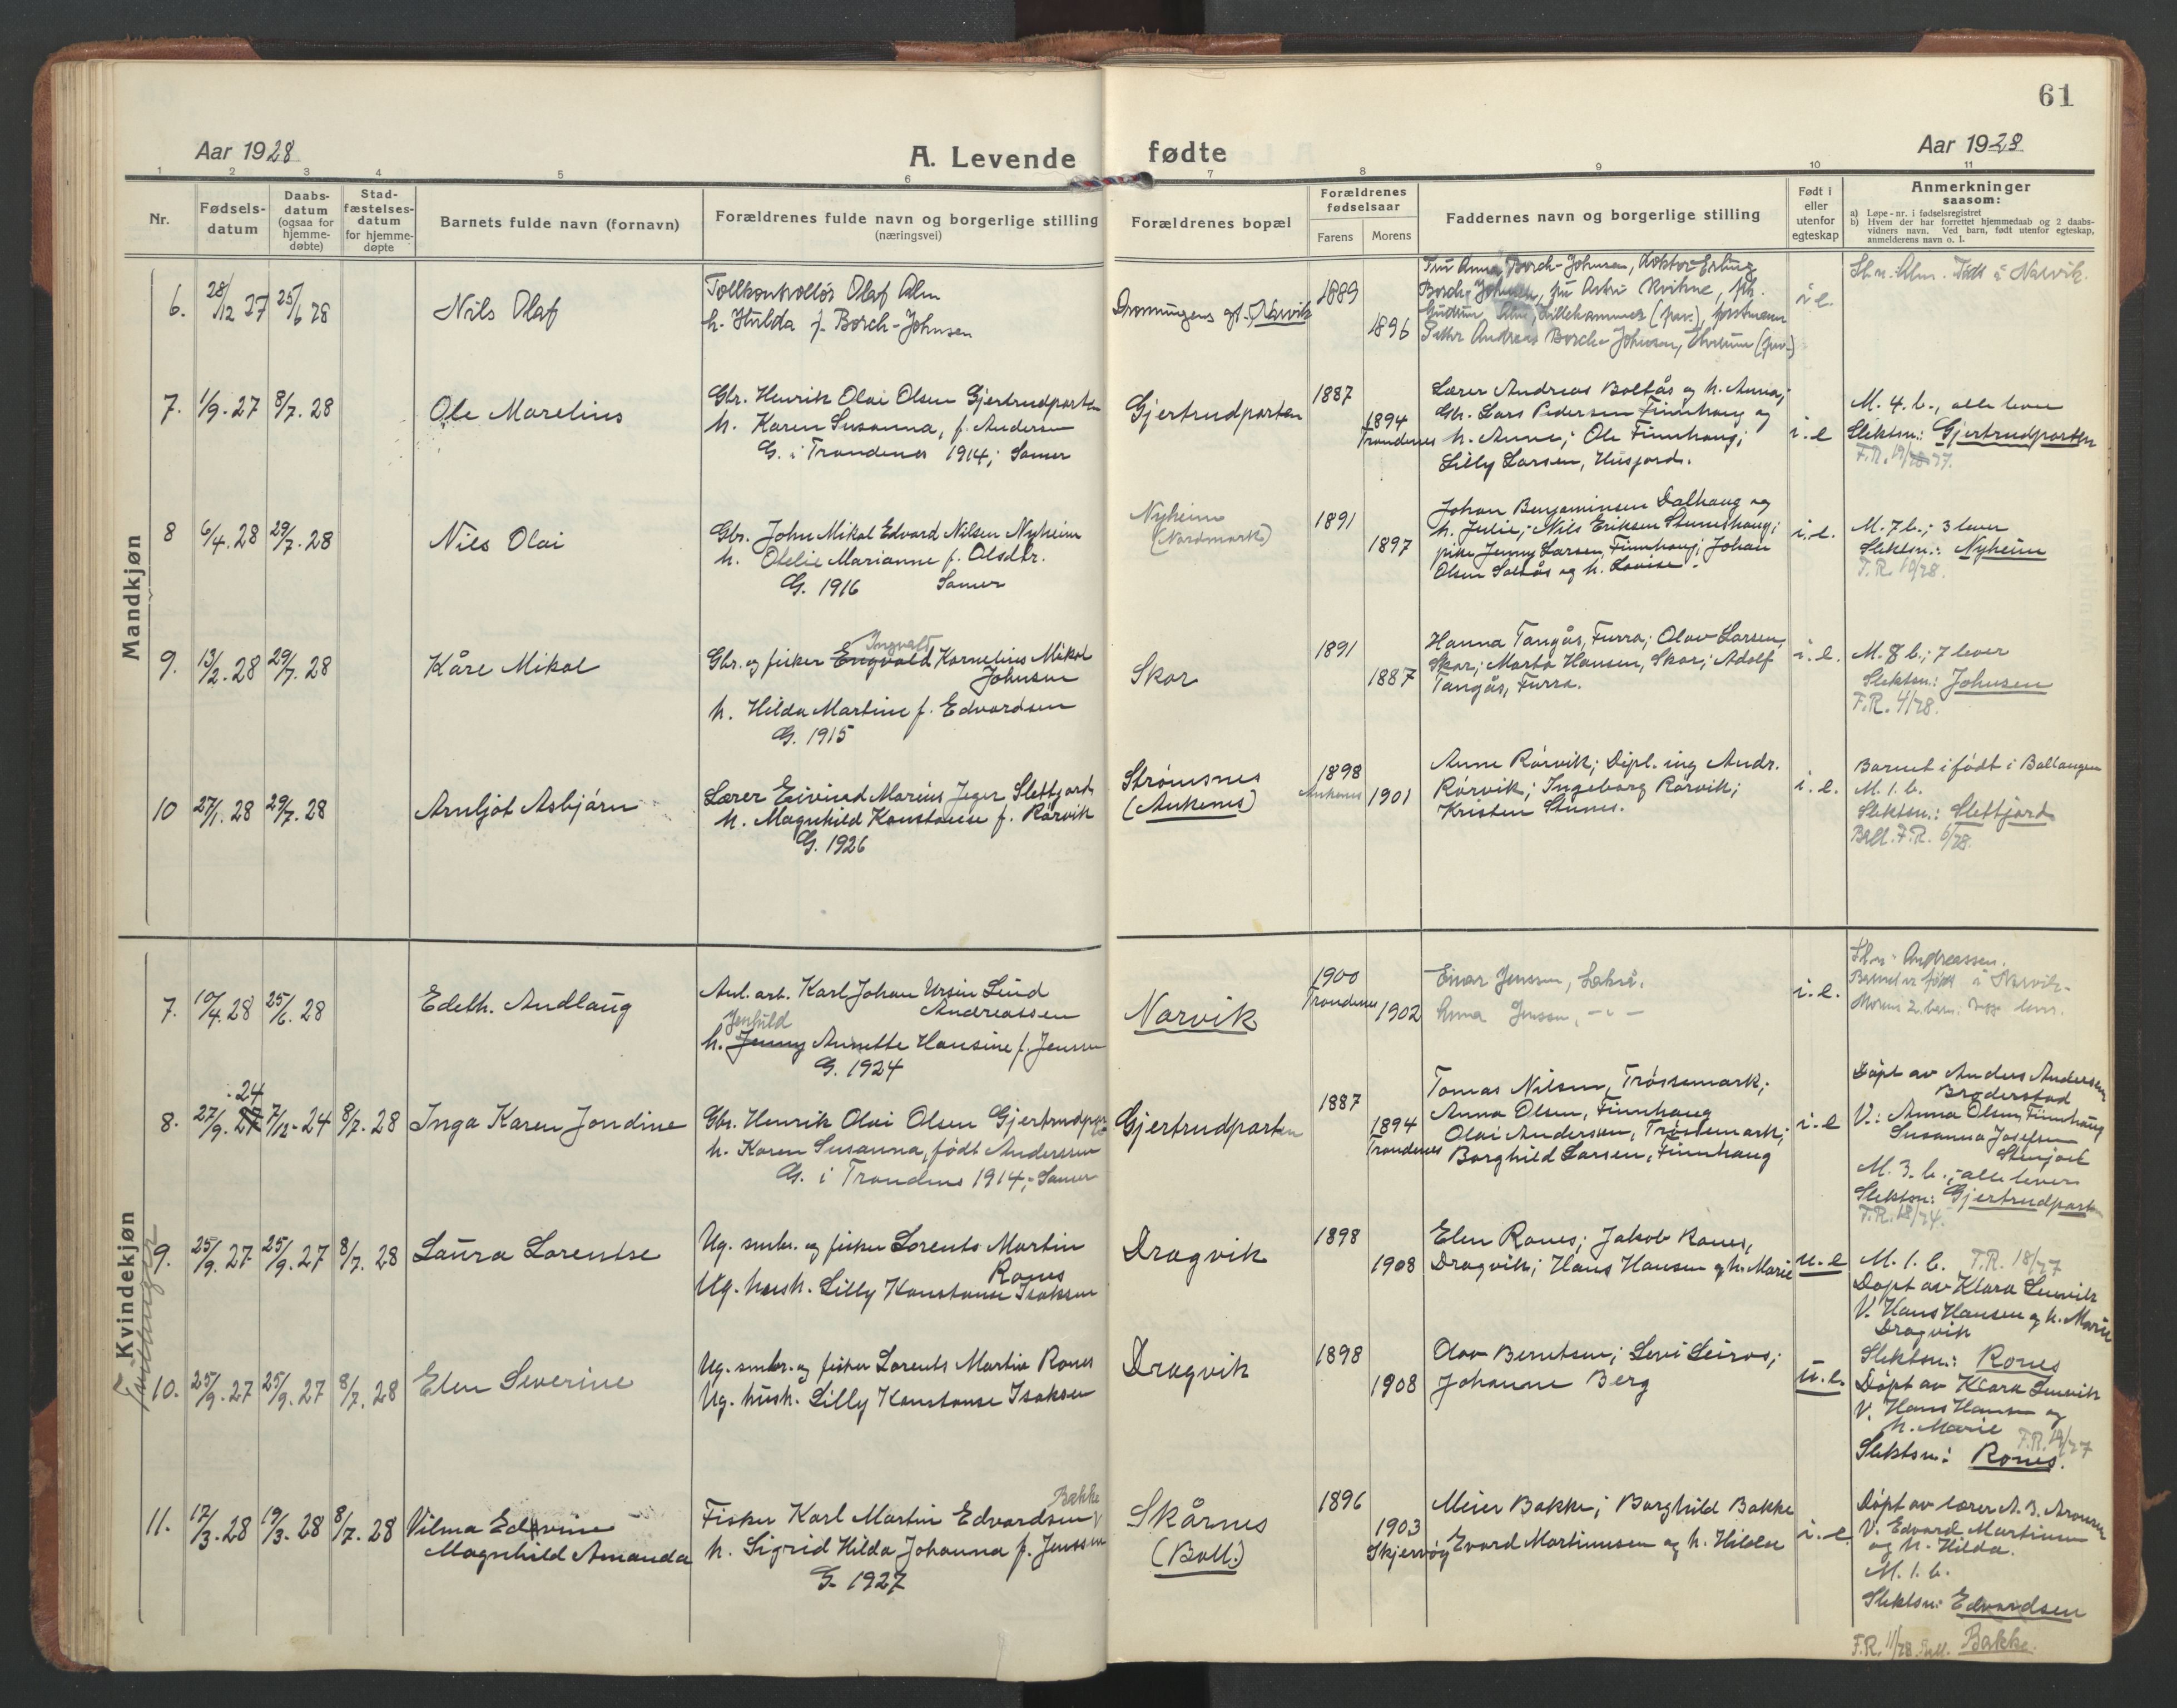 61
Aar 1928
A. Levende
fødte
Aar 1928
1 2 3 4 5 6 7 8 9 10 11
Nr.
Fødsels-
datum
Daabs-
datum
(ogsaa for
hjemme-
døbte)
Stad-
fæstelses-
datum
for hjemme-
døpte
Barnets fulde navn (fornavn)
Forældrenes fulde navn og borgerlige stilling
(næringsvei)
Forældrenes bopæl
Forældrenes
fødselsaar
Farens
Morens
Faddernes navn og borgerlige stilling
Født i
eller
utenfor
egteskap
Anmerkninger
saasom:
a) Løpe-nr. i fødselsregistret
b) Hvem der har forrettet hjemmedaab og 2 daabs-
vidners navn. Ved barn, født utenfor egteskap,
anmelderens navn o. l.
Mandkjøn
6.
28/12 27
25/6 28
Nils Olaf
Tollkontrollør Olaf Alm
h. Hulda f. Borch-Johnsen
Dronningens gt. Narvik
1889
1896
Fru Anna Borch-Johnsen, doktor Erling
Borch-Johnsen, fru Astri Kvikne, frk.
Gudrun Alm, Lillehammer (frav.), postmann
Petter Andreas Borch-Johnsen, (frav.)
i e.
Sl.n. Alm. Født i Narvik.
7.
1/9. 27
8/7. 28
Ole Marelius
Gbr. Henrik Olai Olsen Gjertrudparten
h. Karen Susanna, f. Andersen
G. i Trondenes 1914; Samer
Gjertrudparten
1887
1894
Trondenes
Lærer Andreas Boltås og h. Anna;
Gbr. Lars Pedersen Finnhaug og
h. Anne; Ole Finnhaug;
Lilly Larsen, Husjord.
i. e
M. 4. b., alle lever
Slektsn.: Gjertrudparten
F.R. 19/27.
8
6/4. 28
29/7. 28
Nils Olai
Gbr. John Mikal Edvard Nilsen Nyheim
h. Otelie Marianne f. Olsdtr.
G. 1916 Samer
Nyheim
(Vardmark)
1891
1897
Johan Benjaminsen Dalhaug og
h. Julie; Nils Eriksen Stunishaug;
pike Jenny Larsen, Finnhaug; Johan
Olsen Saltås og h. Lovise.
i. e.
M. 7 b.; 3 lever
Slektsn.: Nyheim
F.R. 10/28.
9.
13/2. 28
29/7. 28
Kåre Mikal
Ingvald
Gbr. og fisker Engvald Kornelius Mikal
Johnsen
h. Hilda Martine f. Edvardsen
G. 1915
Skar
1891
1887
Hanna Tangås, Furra; Olav Larsen,
Skar; Marta Hansen, Skar; Adolf
Tangås, Furra.
i. e.
M. 8 b.; 7 lever
Slektsn.: Johnsen
F.R. 4/28.
10
27/1. 28
29/7. 28
Arnljot Asbjørn
Lærer Eivind Marius Jeger Slettjord
h. Magnhild Konstanse f. Rørvik
G. 1926
Strømsnes
(Ankenes)
1898
Ankenes
1901
Anne Rørvik; Dipl. ing Andr.
Rørvik; Ingeborg Rørvik;
Kristen Stunes.
i. e.
Barnet i født i Ballangen
M. 1. b.
Slektsn.: Slettjord
Ball. F.R. 6/28.
Kvindekjøn
7.
10/4. 28
25/6. 28
Edith. Audlaug
Anl. arb. Karl Johan Ursin Lind
Andreassen
Jenhild
h. Jenny Annette Hansine f. Jensen
G. 1924
Narvik
1900
Trondenes
1902
Einar Jensen, Sakså.
Anna Jensen, -"-
i. e.
Sl.n. Andreassen.
Barnet er født i Narvik.
Morens 2. barn. Begge lever.
8.
24
27/9. 27
7/12 - 24
8/7. 28
Inga Karen Jondine
Gbr. Henrik Olai Olsen Gjertrudparten
h. Karen Susanna, født Andersen
G. i Trondenes 1914; Samer
Gjertrudparten
1887
1894
Trondenes
Tomas Nilsen, Trøssemark;
Anna Olsen, Finnhaug
Olai Andersen, Trøssemark;
Borghild Larsen, Finnhaug
i. e
Døpt av Anders Andersen
Broderstad
V.: Anna Olsen, Finnhaug
Susanna Josefsen
M. 3. b.; alle lever
Slektsn: Gjertrudparten
F.R. 18/24.
Tvillinger
9.
25/9. 27
25/9. 27
8/7. 28
Laura Lorentse
Ug. smbr. og fisker Lorents Martin
Rones
Ug. hush. Lilly Konstanse Isaksen
Dragvik
1898
1908
Elen Rones; Jakob Rones,
Dragvik; Hans Hansen og h. Marie
u. e
M. 1. b. F.R. 18/27
Døpt av Klara Leinvik
V. Hans Hansen og h. Marie
Dragvik
Slektsn.: Rones
10.
25/9. 27
25/9. 27
8/7. 28
Elen Severine
Ug. smbr. og fisker Lorents Martin Rones
Ug. hush. Lilly Konstanse Isaksen
Dragvik
1898
1908
Olav Berntsen; Levi Leiros;
Johanne Berg
u. e.
Døpt av Klara Leinvik
V. Hans Hansen og
h. Marie
F.R. 19/27
Slektsn: Rones.
11.
17/3. 28
19/3. 28
8/7. 28
Vilma Edvine
Magnhild Amanda
Bakke
Fisker Karl Martin Edvardsen
h. Sigrid Hilda Johanna f. Jenssen
G. 1927
Skårnes
(Ball.)
1896
1903
Skjervøy
Meier Bakke; Borghild Bakke
Evard Martinusen og h. Hilda
i. e.
Døpt av lærer A. B. Aronsen
V. Edvard Martinsen
og h. Hilda.
M. 1. b.
Slektsn: Edvardsen
F.R. 11/28. Ball. Bakke.